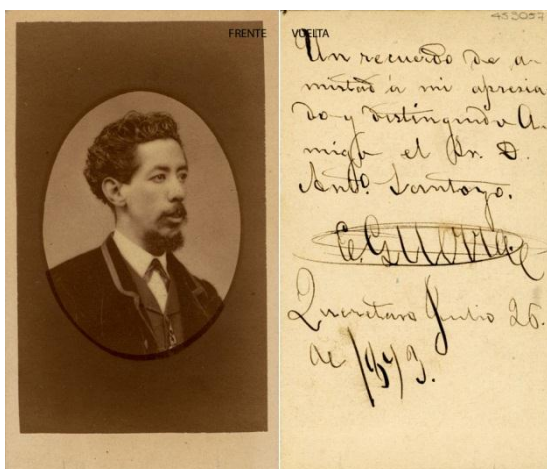 FRENTE
VUELTA
453057
Un recuerdo de a-
mistad á mi apresia
do y distinguido A.
migo el Sr. D.
Anto. Santoyo.
Querétaro Julio 26.
de 1873.